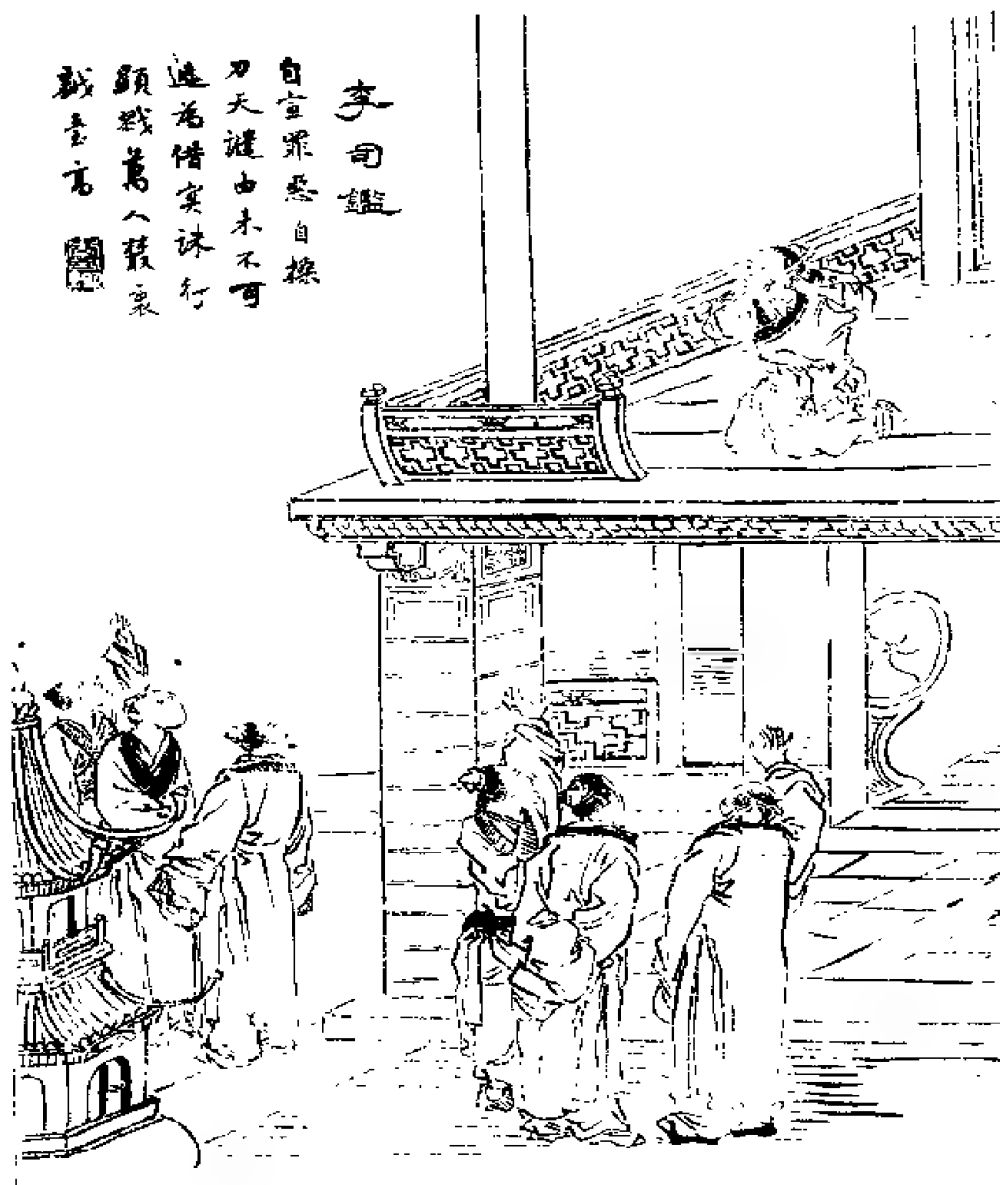 李司鑑
自宣罪惡自操
刀天譴由来不可
逃為借冥誅行
顯戮萬人叢裏
戲臺高